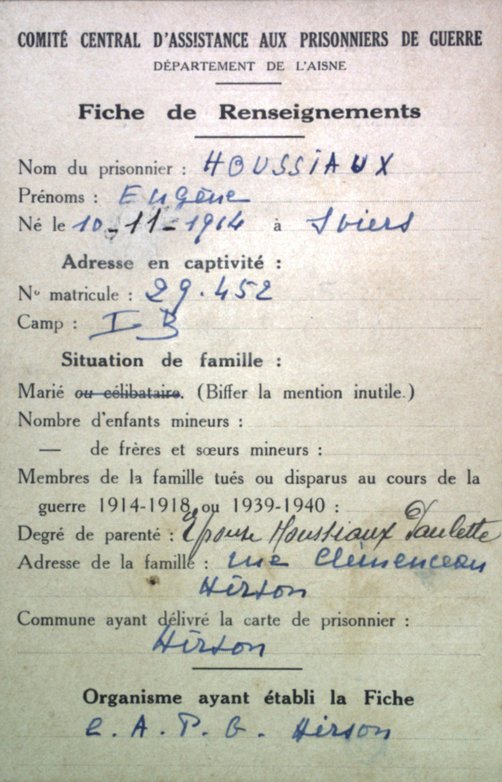 COMITÉ CENTRAL D'ASSISTANCE AUX PRISONNIERS DE GUERRE
DÉPARTEMENT DE L'AISNE
Fiche de Renseignements
Nom du prisonnier : HOUSSIAUX
Prénoms : Eugène
Né le 10-11-1914 à
Adresse en captivité :
No matricule : 29.452
Camp : I B
Situation de famille :
Marié ou célibataire. (Biffer la mention inutile.)
Nombre d'enfants mineurs :
— de frères et sœurs mineurs :
Membres de la famille tués ou disparus au cours de la
guerre 1914-1918 ou 1939-1940 :
Degré de parenté : Epouse Houssiaux Paulette
Adresse de la famille : rue Clémenceau
Hirson
Commune ayant délivré la carte de prisonnier :
Hirson
Organisme ayant établi la Fiche
C. A. P. G. Hirson